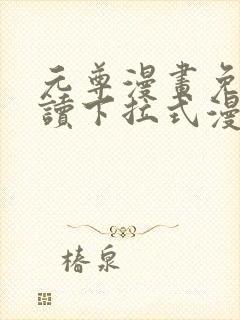 元尊漫畫免
讀下拉式漫
椿泉